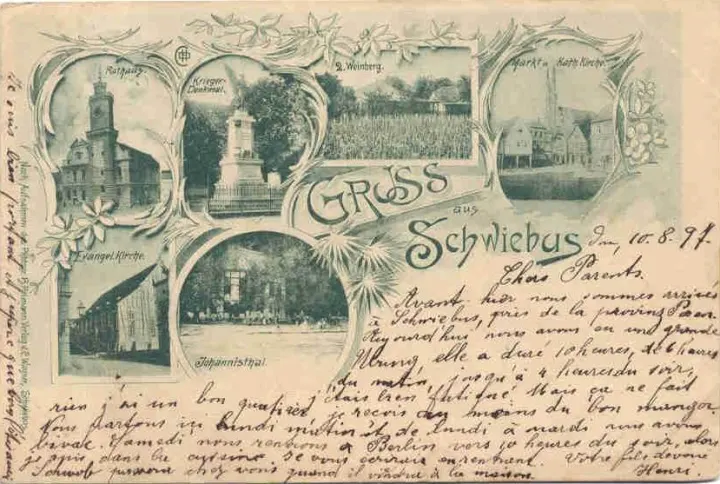 Rathaus.
Krieger-
Denkmal.
2. Weinberg.
Markt u. Kath. Kirche.
GRUSS
aus
Schwiebus
Evangel. Kirche.
Johannisthal.
den, 10.8.97.
Chers Parents.
Avant hier nous sommes arrivés
à Schwiebus, près de la province
Aujourd'hui nous avons eu une grande
Übung elle a duré 10 heures, de 6 heures
du matin, jusqu'à 4 heures du soir,
j'étais bien fatigué. Mais ça ne fait
rien j'ai un bon quartier je reçois au moins du bon manger
Nous partons ici lundi matin et de lundi à mardi nous avons
bivac. Samedi nous rentrons à Berlin vers 10 heures du soir, alors
je suis dans la cuisine. Je vous écrirais en rentrant. Votre fils dévoué
Schwob passera chez vous quand il viendra à la maison. Henri.
Je suis bien portant et j'espère que vous